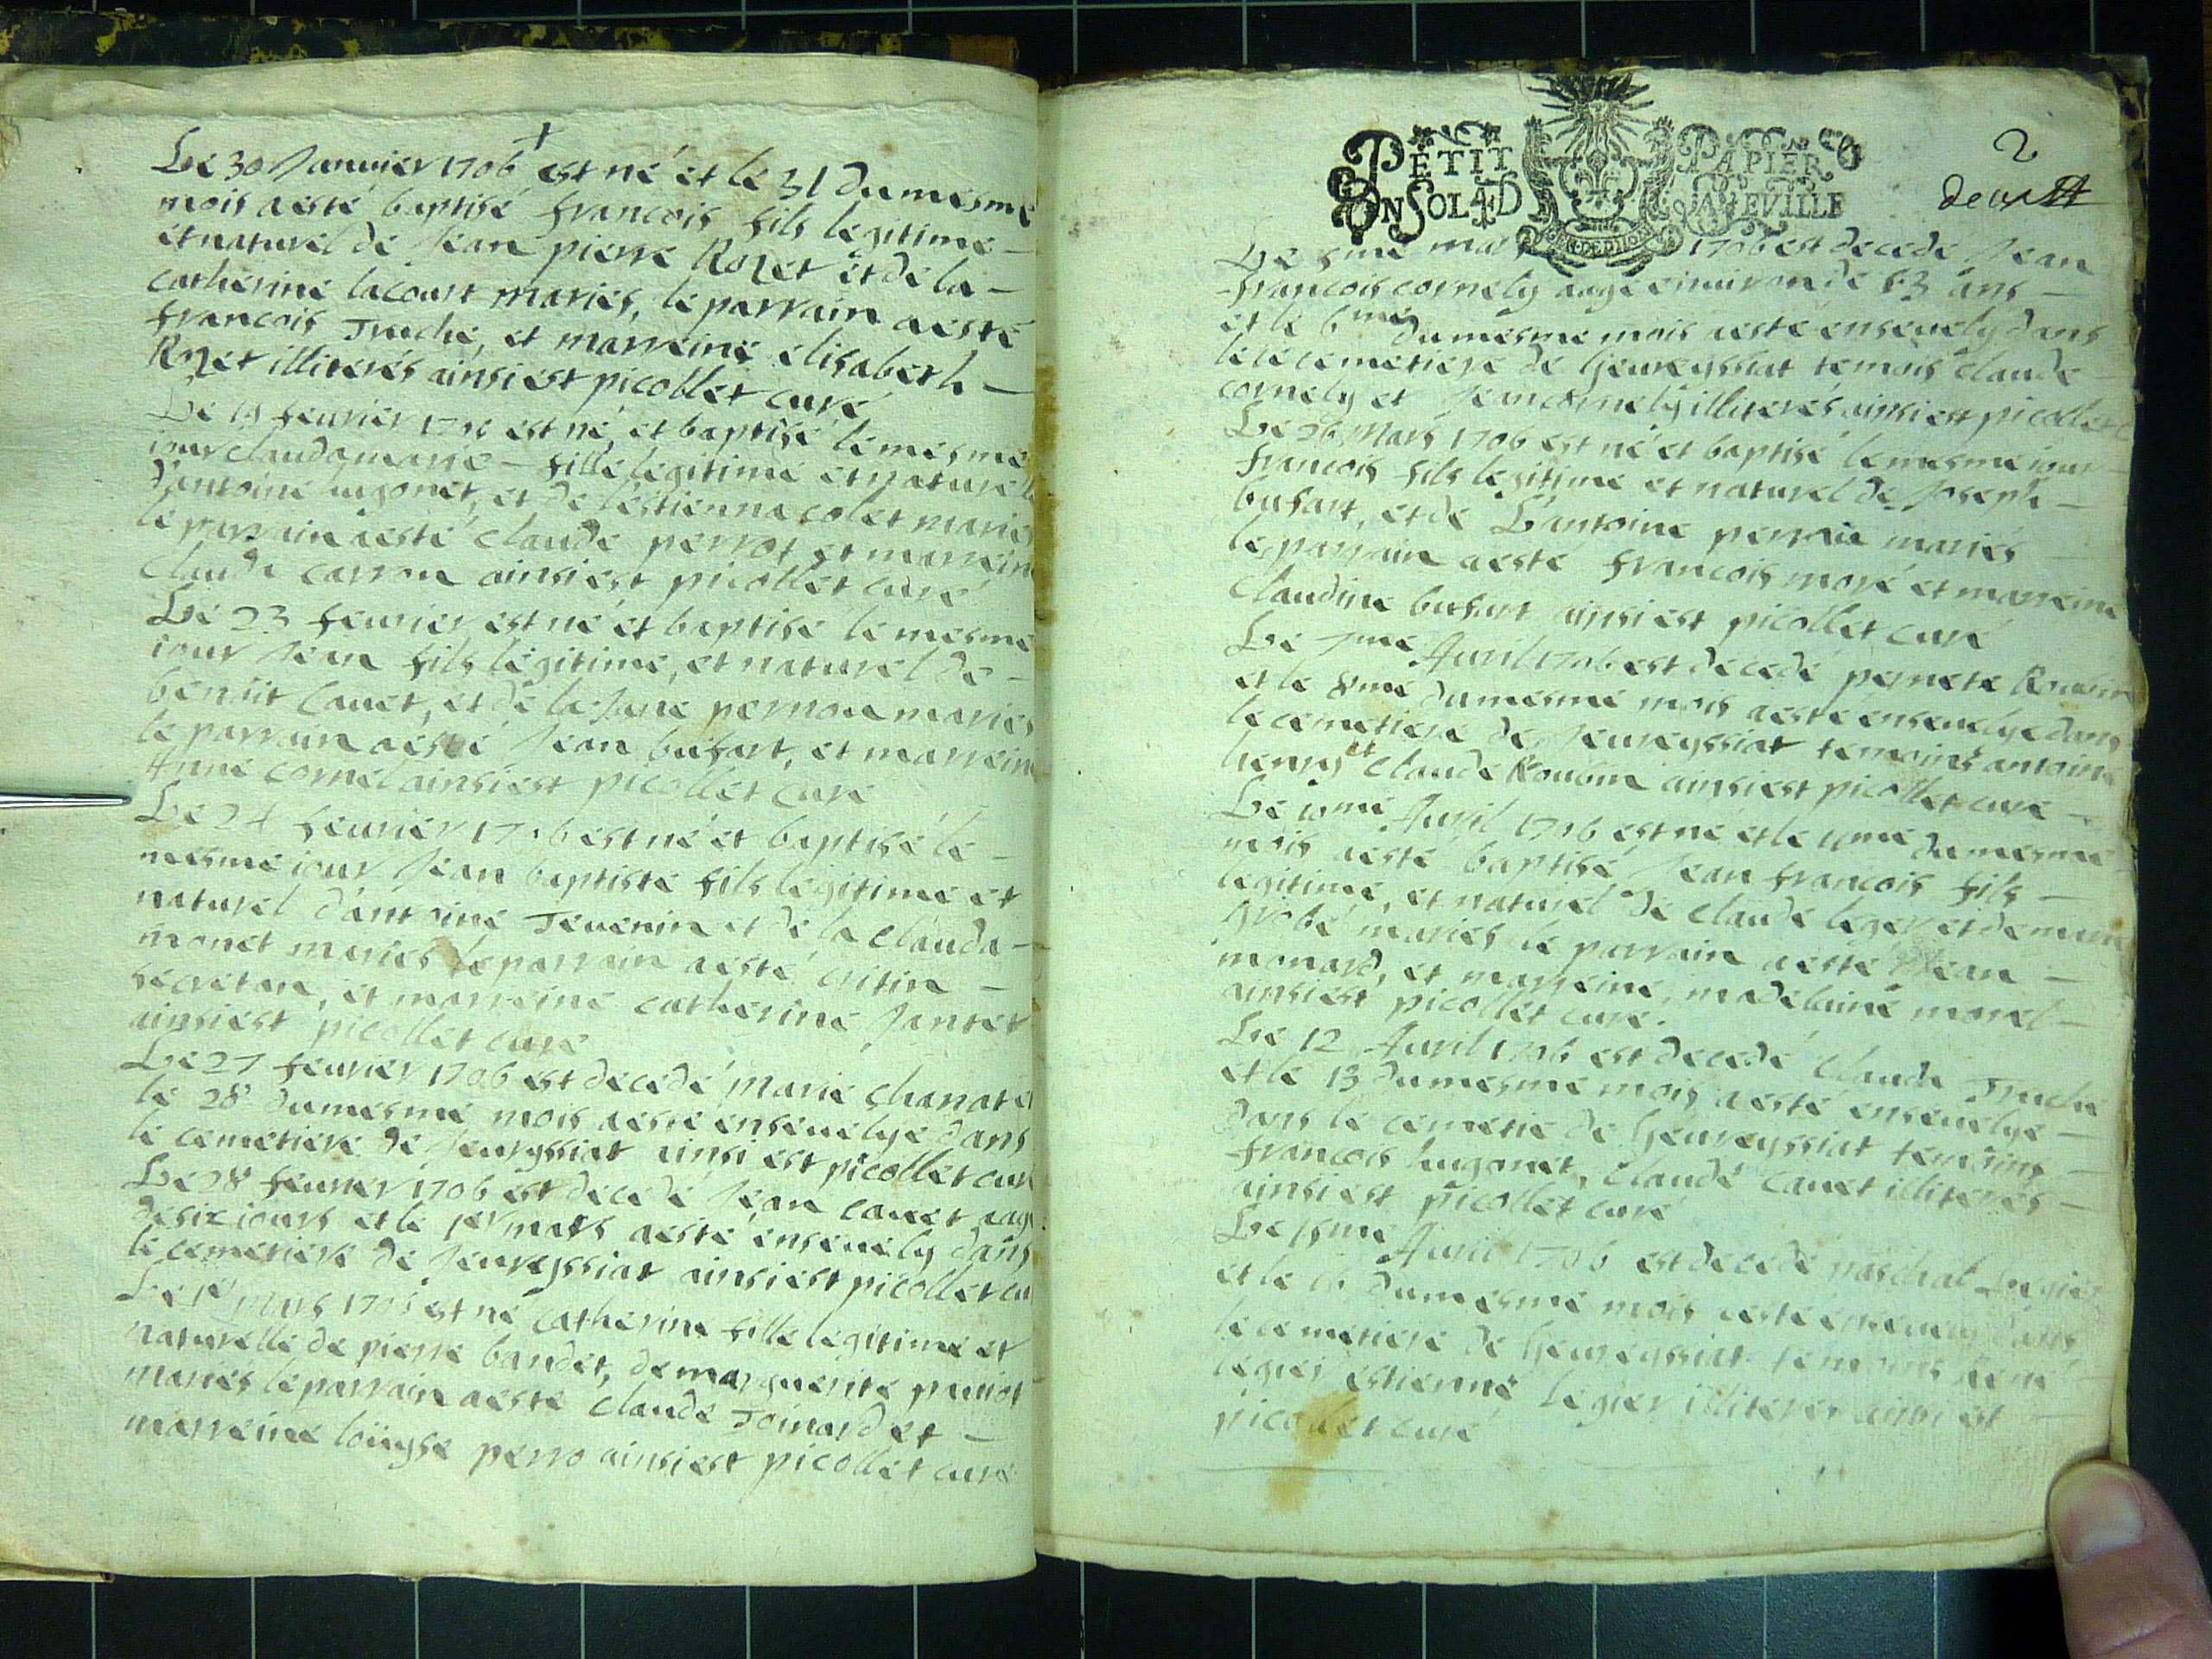 Le 30 Januier 1706 est né et le 31 du mesme
mois a esté baptisé francois fils legitime
et naturel de Jean pierre Rozet et de la
catherine lacourt mariés, le parrain a esté
francois Truche, et marreine elisabeth
Rozet illiterés ainsi est picollet curé
Le 19 feurier 1706 est né, et baptisé le mesme
iour claudamarie fille legitime et naturelle
d'antoine hugonet, et de l'estienna colet mariés
le parrain a esté claude perrot et marreine
claude carron ainsi est picollet curé
Le 23 feurier est né et baptisé le mesme
iour Jean fils legitime, et naturel de
benoit Cauet, et de la Jane pernon mariés
le parrain a esté Jean bufart, et marreine
Anne cornel ainsi est picollet curé
Le 24 feurier 1706 est né et baptisé le
mesme iour Jean baptiste fils legitime et
naturel d'antoine Teuenin et de la clauda
monet mariés le parrain a esté
secretan, et marreine catherine Jantet
ainsi est picollet curé
Le 27 feurier 1706 est decedé marie chanate
le 28 du mesme mois a esté enseuelye dans
le cemetiere de Jeuryssiat ainsi est picollet curé
Le 28 feurier 1706 est decedé Jean cauet aagé
de six iours et le 1er mars a esté enseuely dans
le cemetiere de Jeureyssiat ainsi est picollet cu
Le 1er mars 1706 est né catherine fille legitime et
naturelle de pierre bandet, de marguerite
mariés le parrain a esté claude Toinard et
marreine loüyse perro ainsi est picollet curé
2
PETIT PAPIER
UN SOL 4 D LA FEVILLE
deux
Le 5me mars 1706 est decedé Jean
francois cornely aagé enuiron de 53 ans
et le 6me du mesme mois a esté enseuely dans
le cemetiere de Geureyssiat temois claude
cornely et Jean cornely illiterés ainsi est picollet
Le 26 Mars 1706 est né et baptisé le mesme iour
francois fils legitime et naturel de Joseph
bufart, et de L'antoine perroin mariés
le parrain a esté francois moré et marreine
Claudine bufart ainsi est picollet curé
Le 7me Auril 1706 est decedé pernete
et le 8me du mesme mois a esté enseuelye dans
le cemetiere de Jeureyssiat temoins antoine
henry et claude Roubin ainsi est picollet curé
Le 10me Auril 1706 est né et le 11me du mesme
mois a esté baptisé Jean francois fils
legitime, et naturel de claude leger et de
grobé mariés le parrain a esté Jean
monard, et marreine, madelaine morel
ainsi est picollet curé.
Le 12 Auril 1706 est decedé Clauda Truche
et le 13 du mesme mois a esté enseuelye
dans le cemetie de Geureyssiat temoins
francois hugonet, claude cauet illiterés
ainsi est picollet curé
Le 15me Auril 1706 est decedé paschal Legier
et le 16 du mesme mois a esté enseuely dans
le cemetiere de Geureyssiat temoins
legier estienne legier illiterés ainsi est
picollet curé